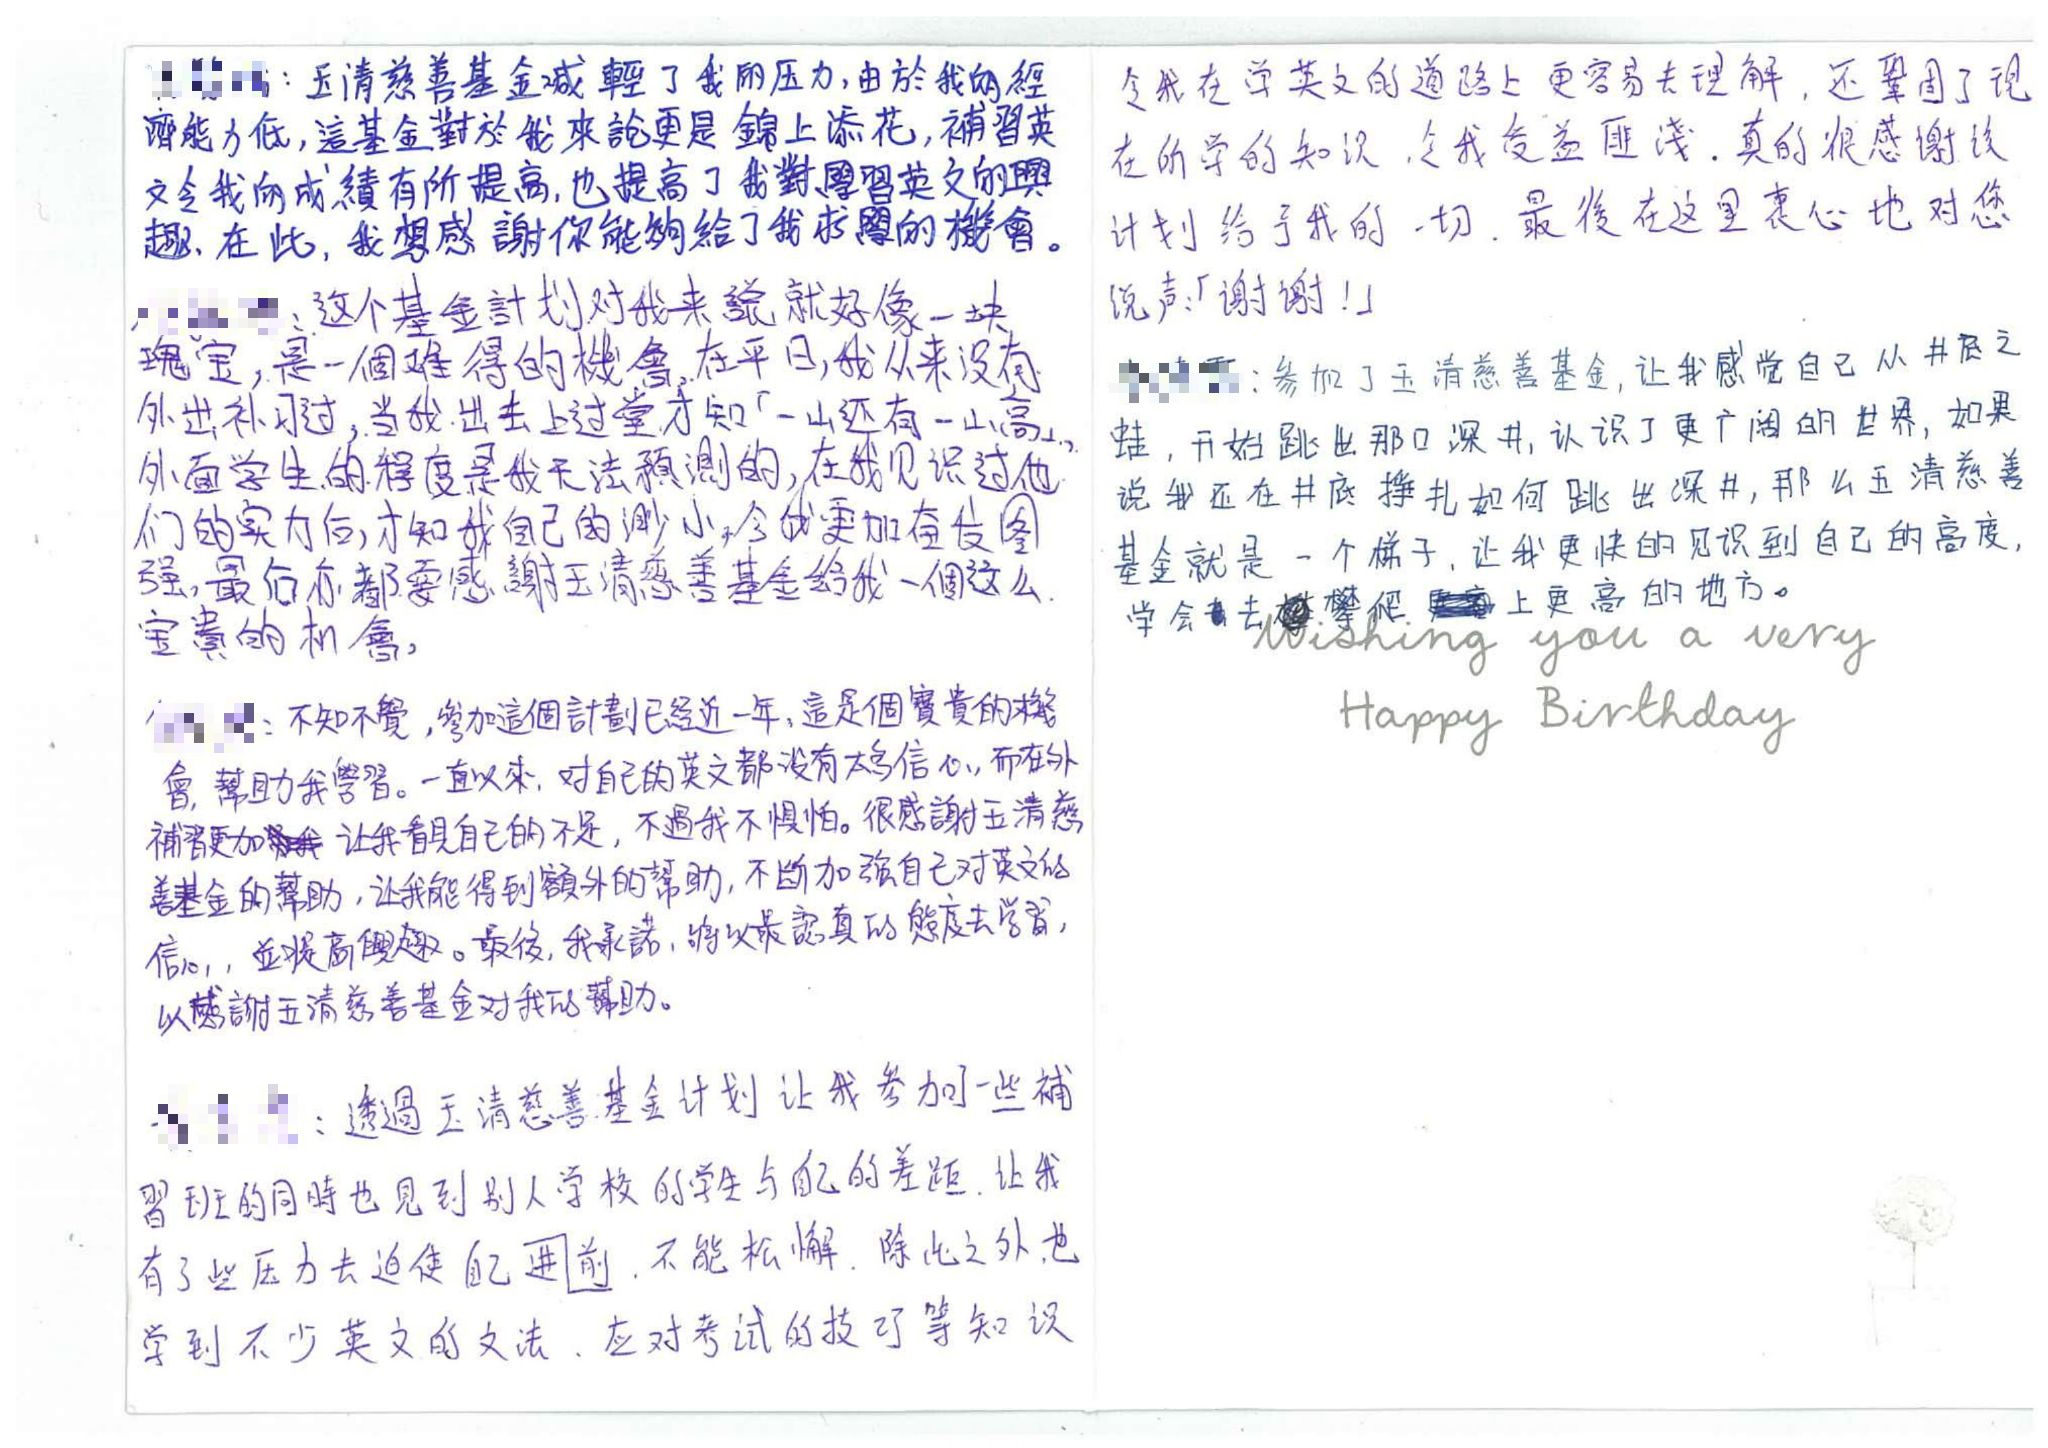 ：玉清慈善基金減輕了我的压力，由於我的經
濟能力低，這基金對於我來說更是錦上添花，補習英
文令我的成績有所提高，也提高了我對學習英文的興
趣。在此，我想感謝你能夠給了我求學的機會。
：这个基金計划对我来説就好像一块
瑰宝，是一個难得的機會，在平日，我从来没有
外出补习过，当我出去上过堂才知「一山还有一山高」，
外面学生的程度是我无法預測的，在我见识过他
们的实力后，才知我自己的渺小，令我更加奋发图
强，最后亦都要感謝玉清慈善基金给我一個这么
宝貴的机會。
：不知不覺，參加這個計劃已經近一年，這是個寶貴的機
會，幫助我學習。一直以來，对自己的英文都没有太多信心，而在外
補習更加 让我看見自己的不足，不過我不惧怕。很感謝玉清慈
善基金的幫助，让我能得到額外的幫助，不斷加強自己对英文的
信心，並提高興趣。最後，我承諾，將以最認真的態度去学習，
以感謝玉清慈善基金对我的幫助。
：透過玉清慈善基金计划让我参加了一些補
習班的同時也見到别人学校的学生与自己的差距．让我
有了些压力去迫使自己进前．不能松懈．除此之外，也
学到不少英文的文法．应对考试的技巧等知识
令我在学英文的道路上更容易去理解，还鞏固了现
在所学的知识，令我受益匪淺．真的很感谢该
计划给予我的一切．最後在这里衷心地对您
说声：「谢谢！」
：参加了玉清慈善基金，让我感觉自己从井底之
蛙，开始跳出那口深井，认识了更广阔的世界，如果
说我还在井底挣扎如何跳出深井，那么玉清慈善
基金就是一个梯子，让我更快的见识到自己的高度，
学会去攀爬上更高的地方。
Wishing you a very
Happy Birthday